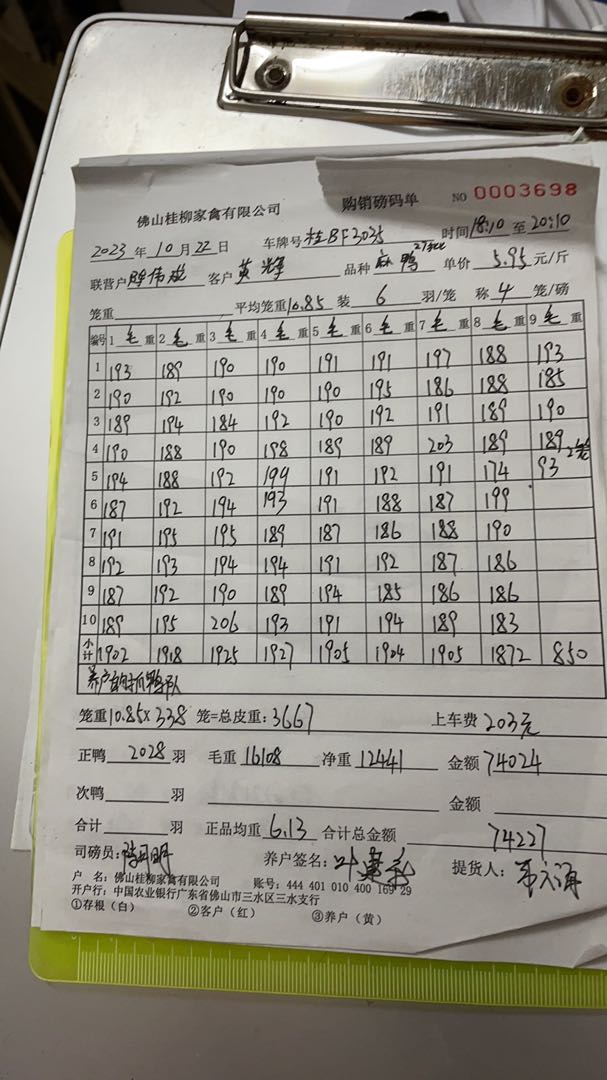 佛山桂柳家禽有限公司 购销磅码单 NO 0003698
2023年10月22日 车牌号桂BF3035 时间18:10至20:10
联营户 伟成 客户黄辉 品种麻鸭 单价5.95元/斤
笼重 平均笼重10.85装6羽/笼 称4笼/磅
编号 1毛重 2毛重 3毛重 4毛重 5毛重 6毛重 7毛重 8毛重 9毛重
1 193 189 190 190 191 191 197 188 193
2 190 192 190 190 190 195 186 188 185
3 189 194 184 192 190 192 191 189 190
4 190 188 190 198 189 189 203 189 189
5 194 188 192 199 191 192 191 174 93 2笼
6 187 192 194 193 191 188 187 199
7 191 195 195 189 187 186 188 190
8 192 193 194 194 191 192 187 186
9 187 192 190 189 194 185 186 186
10 189 195 206 193 191 194 189 183
小计 1902 1918 1925 1927 1905 1904 1905 1872 850
养户自 抓鸭队
笼重10.85×338笼=总皮重:3667 上车费203元
正鸭2028羽 毛重16108 净重12441 金额74024
次鸭 羽 金额
合计 羽 正品均重6.13 合计总金额74227
司磅员: 养户签名:叶 提货人:
户 名:佛山桂柳家禽有限公司 账号:444 401 010 400 169 29
开户行:中国农业银行广东省佛山市三水区三水支行
①存根(白) ②客户(红) ③养户(黄)